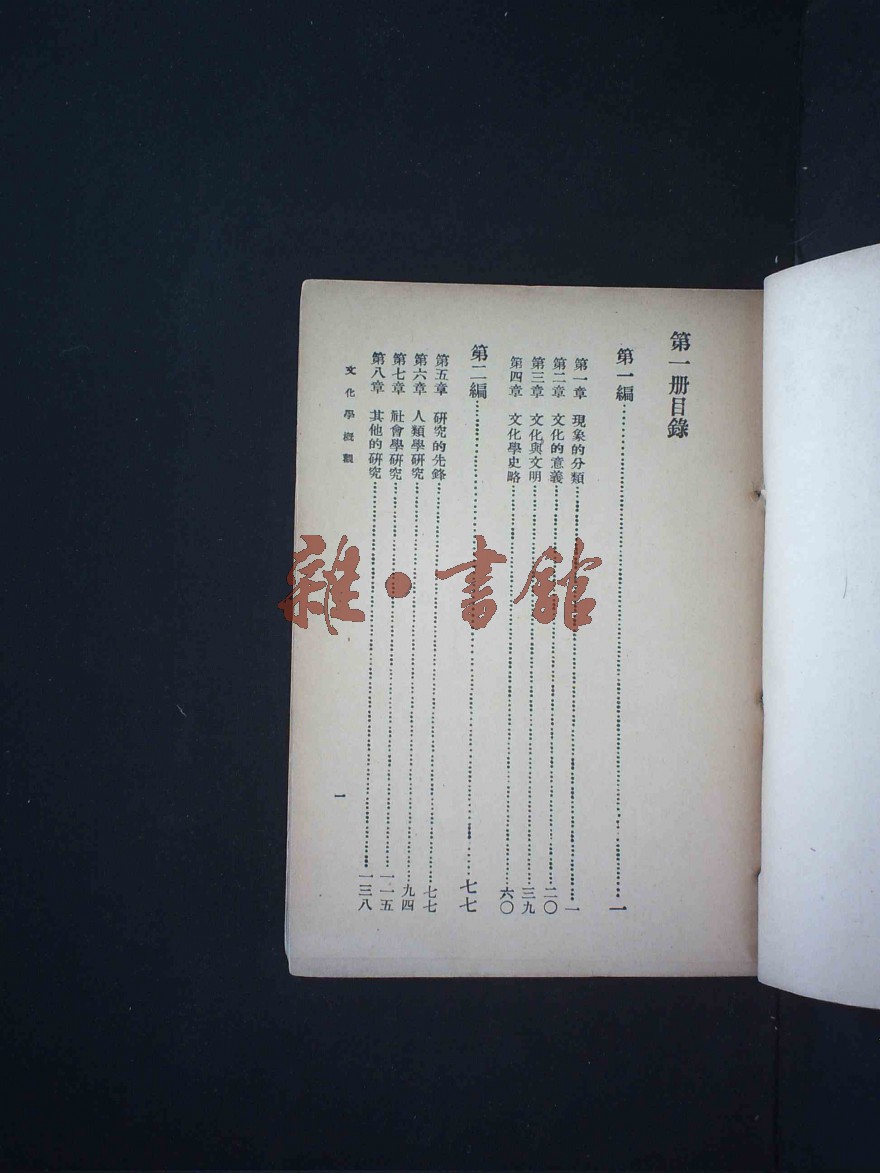 第一册目錄
第一編……一
第一章 現象的分類……一
第二章 文化的意義……二〇
第三章 文化與文明……三九
第四章 文化學史略……六〇
第二編……七七
第五章 研究的先鋒……七七
第六章 人類學研究……九四
第七章 社會學研究……一一五
第八章 其他的研究……一三八
文化學概觀
一
雜·書館